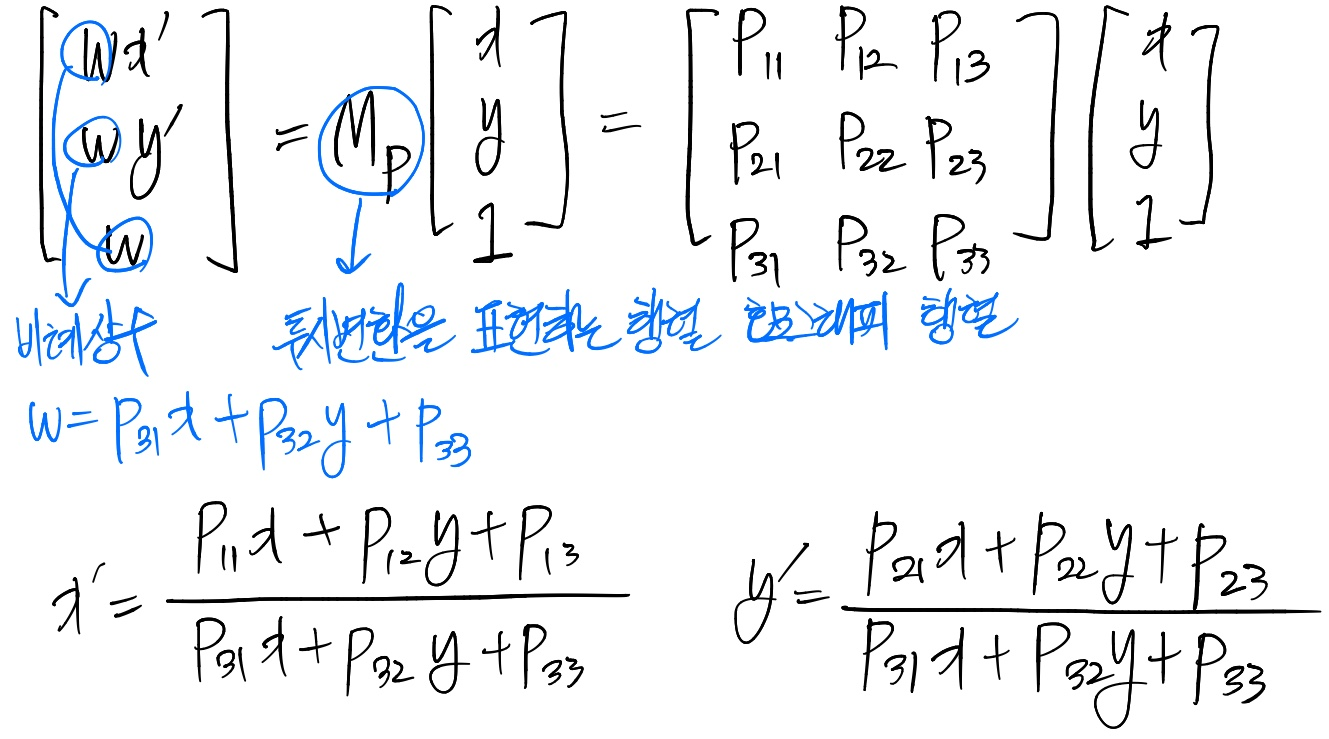 [wx' wy' w] = Mp [x y 1] = [P11 P12 P13 P21 P22 P23 P31 P32 P33] [x y 1]
비례상수 투시변환을 표현하는 행렬 호모그래피 행렬
w = P31x + P32y + P33
x' = (P11x + P12y + P13) / (P31x + P32y + P33)
y' = (P21x + P22y + P23) / (P31x + P32y + P33)